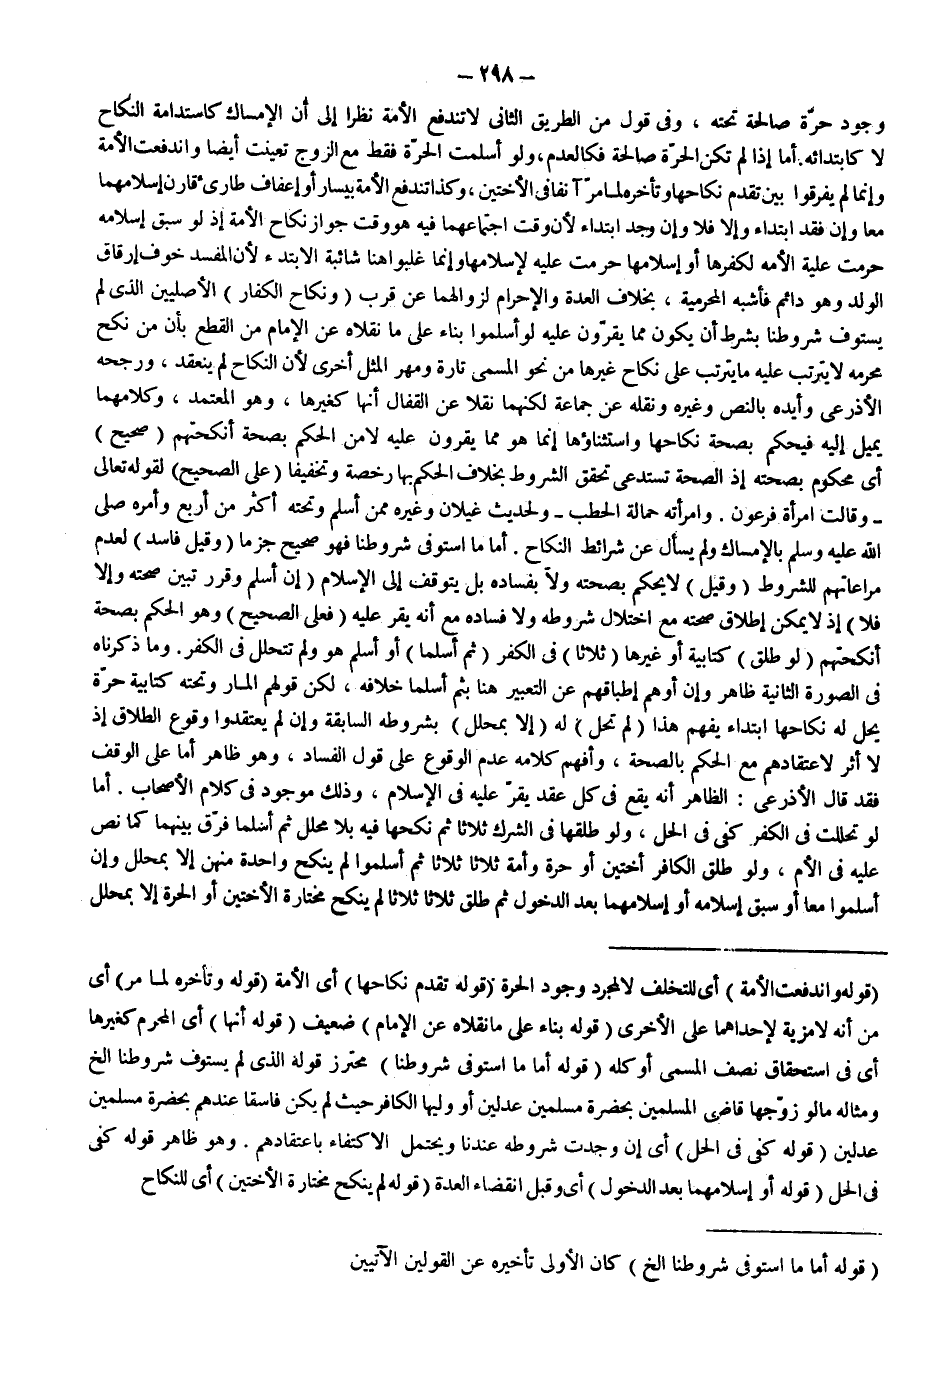 — ٢٩٨ —
وجود حرّة صالحة تحته ، وفى قول من الطريق الثانى لاتندفع الأمة نظرا إلى أن الإمساك كاستدامة النكاح
لا كابتدائه. أما إذا لم تكن الحرّة صالحة فكالعدم، ولو أسلمت الحرّة فقط مع الزوج تعينت أيضا واندفعت الأمة
وإنما لم يفرقوا بين تقدم نكاحها وتأخره لمامرّ آنفا فى الأختين ، وكذا تندفع الأمة بيسار أو إعفاف طارئ قارن إسلامهما
معا وإن فقد ابتداء وإلا فلا وإن وجد ابتداء لأن وقت اجتماعهما فيه هو وقت جواز نكاح الأمة إذ لو سبق إسلامه
حرمت علية الأمه لكفرها أو إسلامها حرمت عليه لإسلامها وإنما غلبوا هنا شائبة الابتد ء لأن المفسد خوف إرقاق
الولد وهو دائم فأشبه المحرمية ، بخلاف العدة والإحرام لزوالهما عن قرب ( ونكاح الكفار ) الأصليين الذى لم
يستوف شروطنا بشرط أن يكون مما يقرّون عليه لو أسلموا بناء على ما نقلاه عن الإمام من القطع بأن من نكح
محرمه لايترتب عليه مايترتب على نكاح غيرها من نحو المسمى تارة ومهر المثل أخرى لأن النكاح لم ينعقد ، ورجحه
الأذرعى وأيده بالنص وغيره ونقله عن جماعة لكنهما نقلا عن القفال أنها كغيرها ، وهو المعتمد ، وكلامهما
يميل إليه فيحكم بصحة نكاحها واستثناؤها إنما هو مما يقرون عليه لامن الحكم بصحة أنكحتهم ( صحيح )
أى محكوم بصحته إذ الصحة تستدعى تحقق الشروط بخلاف الحكم بها رخصة وتخفيفا ( على الصحيح ) لقوله تعالى
ـ وقالت امرأة فرعون . وامرأته حمالة الحطب ـ ولحديث غيلان وغيره ممن أسلم وتحته أكثر من أربع وأمره صلى
الله عليه وسلم بالإمساك ولم يسأل عن شرائط النكاح . أما ما استوفى شروطنا فهو صحيح جزما ( وقيل فاسد ) لعدم
مراعاتهم للشروط ( وقيل ) لايحكم بصحته ولا بفساده بل يتوقف إلى الإسلام ( إن أسلم وقرر تبين صحته وإلا
فلا ) إذ لايمكن إطلاق صحته مع اختلال شروطه ولا فساده مع أنه يقر عليه ( فعلى الصحيح ) وهو الحكم بصحة
أنكحتهم ( لو طلق ) كتابية أو غيرها ( ثلاثا ) فى الكفر ( ثم أسلما ) أو أسلم هو ولم تتحلل فى الكفر. وما ذكرناه
فى الصورة الثانية ظاهر وإن أوهم إطباقهم عن التعبير هنا بثم أسلما خلافه ، لكن قولهم المار وتحته كتابية حرّة
يحل له نكاحها ابتداء يفهم هذا ( لم تحل ) له ( إلا بمحلل ) بشروطه السابقة وإن لم يعتقدوا وقوع الطلاق إذ
لا أثر لاعتقادهم مع الحكم بالصحة ، وأفهم كلامه عدم الوقوع على قول الفساد ، وهو ظاهر أما على الوقف
فقد قال الأذرعى : الظاهر أنه يقع فى كل عقد يقرّ عليه فى الإسلام ، وذلك موجود فى كلام الأصحاب . أما
لو تحللت فى الكفر كفى فى الحل ، ولو طلقها فى الشرك ثلاثا ثم نكحها فيه بلا محلل ثم أسلما فرّق بينهما كما نص
عليه فى الأم ، ولو طلق الكافر أختين أو حرة وأمة ثلاثا ثلاثا ثم أسلموا لم ينكح واحدة منهن إلا بمحلل وإن
أسلموا معا أو سبق إسلامه أو إسلامهما بعد الدخول ثم طلق ثلاثا ثلاثا لم ينكح مختارة الأختين أو الحرة إلا بمحلل
(قوله واندفعت الأمة ) أى للتخلف لالمجرد وجود الحرة (قوله تقدم نكاحها ) أى الأمة (قوله وتأخره لما مر) أى
من أنه لامزية لإحداهما على الأخرى ( قوله بناء على مانقلاه عن الإمام ) ضعيف ( قوله أنها ) أى المحرم كغيرها
أى فى استحقاق نصف المسمى أو كله ( قوله أما ما استوفى شروطنا ) محترز قوله الذى لم يستوف شروطنا الخ
ومثاله مالو زوّجها قاضى المسلمين بحضرة مسلمين عدلين أو وليها الكافر حيث لم يكن فاسقا عندهم بحضرة مسلمين
عدلين ( قوله كفى فى الحل ) أى إن وجدت شروطه عندنا ويحتمل الاكتفاء باعتقادهم . وهو ظاهر قوله كفى
فى الحل ( قوله أو إسلامهما بعد الدخول ) أى وقبل انقضاء العدة ( قوله لم ينكح مختارة الأختين ) أى للنكاح
( قوله أما ما استوفى شروطنا الخ ) كان الأولى تأخيره عن القولين الآتيين